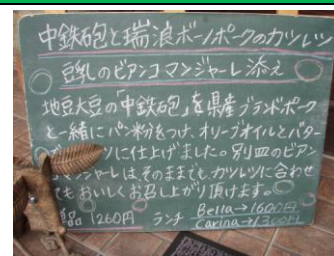 中鉄砲と瑞浪ボーノポークのカツレツ
豆乳のビアンコマンジャーレ添え
地豆大豆の「中鉄砲」を県産ブランドポーク
と一緒にパン粉をつけ、オリーブオイルとバター
ツに仕上げました。別皿のビアン
マンジャーレはそのままでも、カツレツに合わせ
てもおいしくお召し上がり頂けます。
品 1260円 ランチ Bella→1600円
Carina→1300円